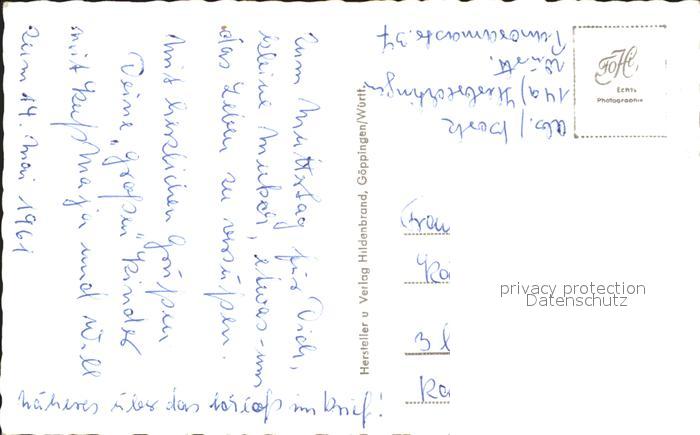 Zum Muttertag für Dich,
kleine Mukář, etwas - um
das Leben zu versüßen.
Mit herzlichen Grüßen
Deine "großen" Kinder
mit Kuß Maja und Will
zum 14. Mai 1961
näheres über das im Brief!
Hersteller u Verlag Hildenbrand, Göppingen/Württ.
Abs.
14a)
Württ.
37
FoHi
Echte
Photographie
Frau
Ka
3 l
Ka
privacy protection
Datenschutz